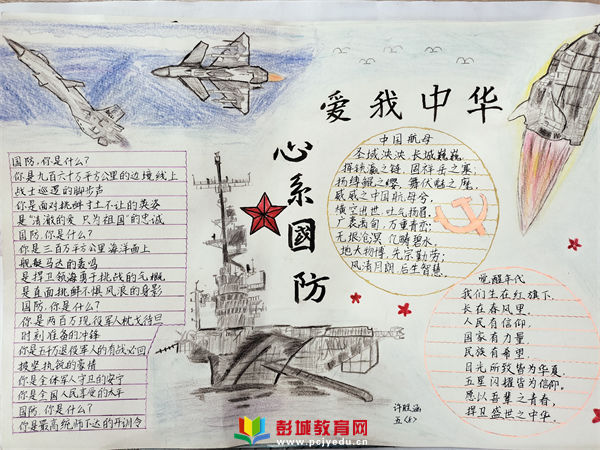 爱我中华
心系國防
国防,你是什么?
你是九百六十万平方公里的边境线上
战士巡逻的脚步声
你是面对挑衅寸土不让的英姿
是“清澈的爱 只为祖国”的忠诚
国防,你是什么?
你是三百万平方公里海洋面上
舰艇马达的轰鸣
是捍卫领海勇于挑战的气概
是直面挑衅不惧风浪的身影
国防,你是什么?
你是两百万现役军人枕戈待旦
时刻准备的冲锋
你是五千万退役军人的有战必回
披坚执锐的豪情
你是全体军人守卫的安宁
你是全国人民享受的太平
国防,你是什么?
你是最高统帅下达的开训令
中国航母
圣域泱泱,长城巍巍,
威威之中国航母兮,
横空出世,吐气扬眉,
无垠沧溟,亿畴碧水,
地大物博,元宗勤劳;
风清月朗,后生智慧.
觉醒年代
我们生在红旗下,
长在春风里.
人民有信仰.
国家有力量
民族有希望.
目光所致皆为华夏.
五星闪耀皆为信仰.
愿以吾辈之青春,
捍卫盛世之中华.
五
彭城教育网
www.pcjyedu.cn